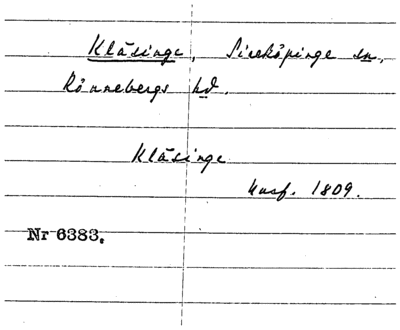 Kläsinge, Sireköpinge sn,
Rönnebergs hd.
Kläsinge
Husf. 1809.
Nr 6383.